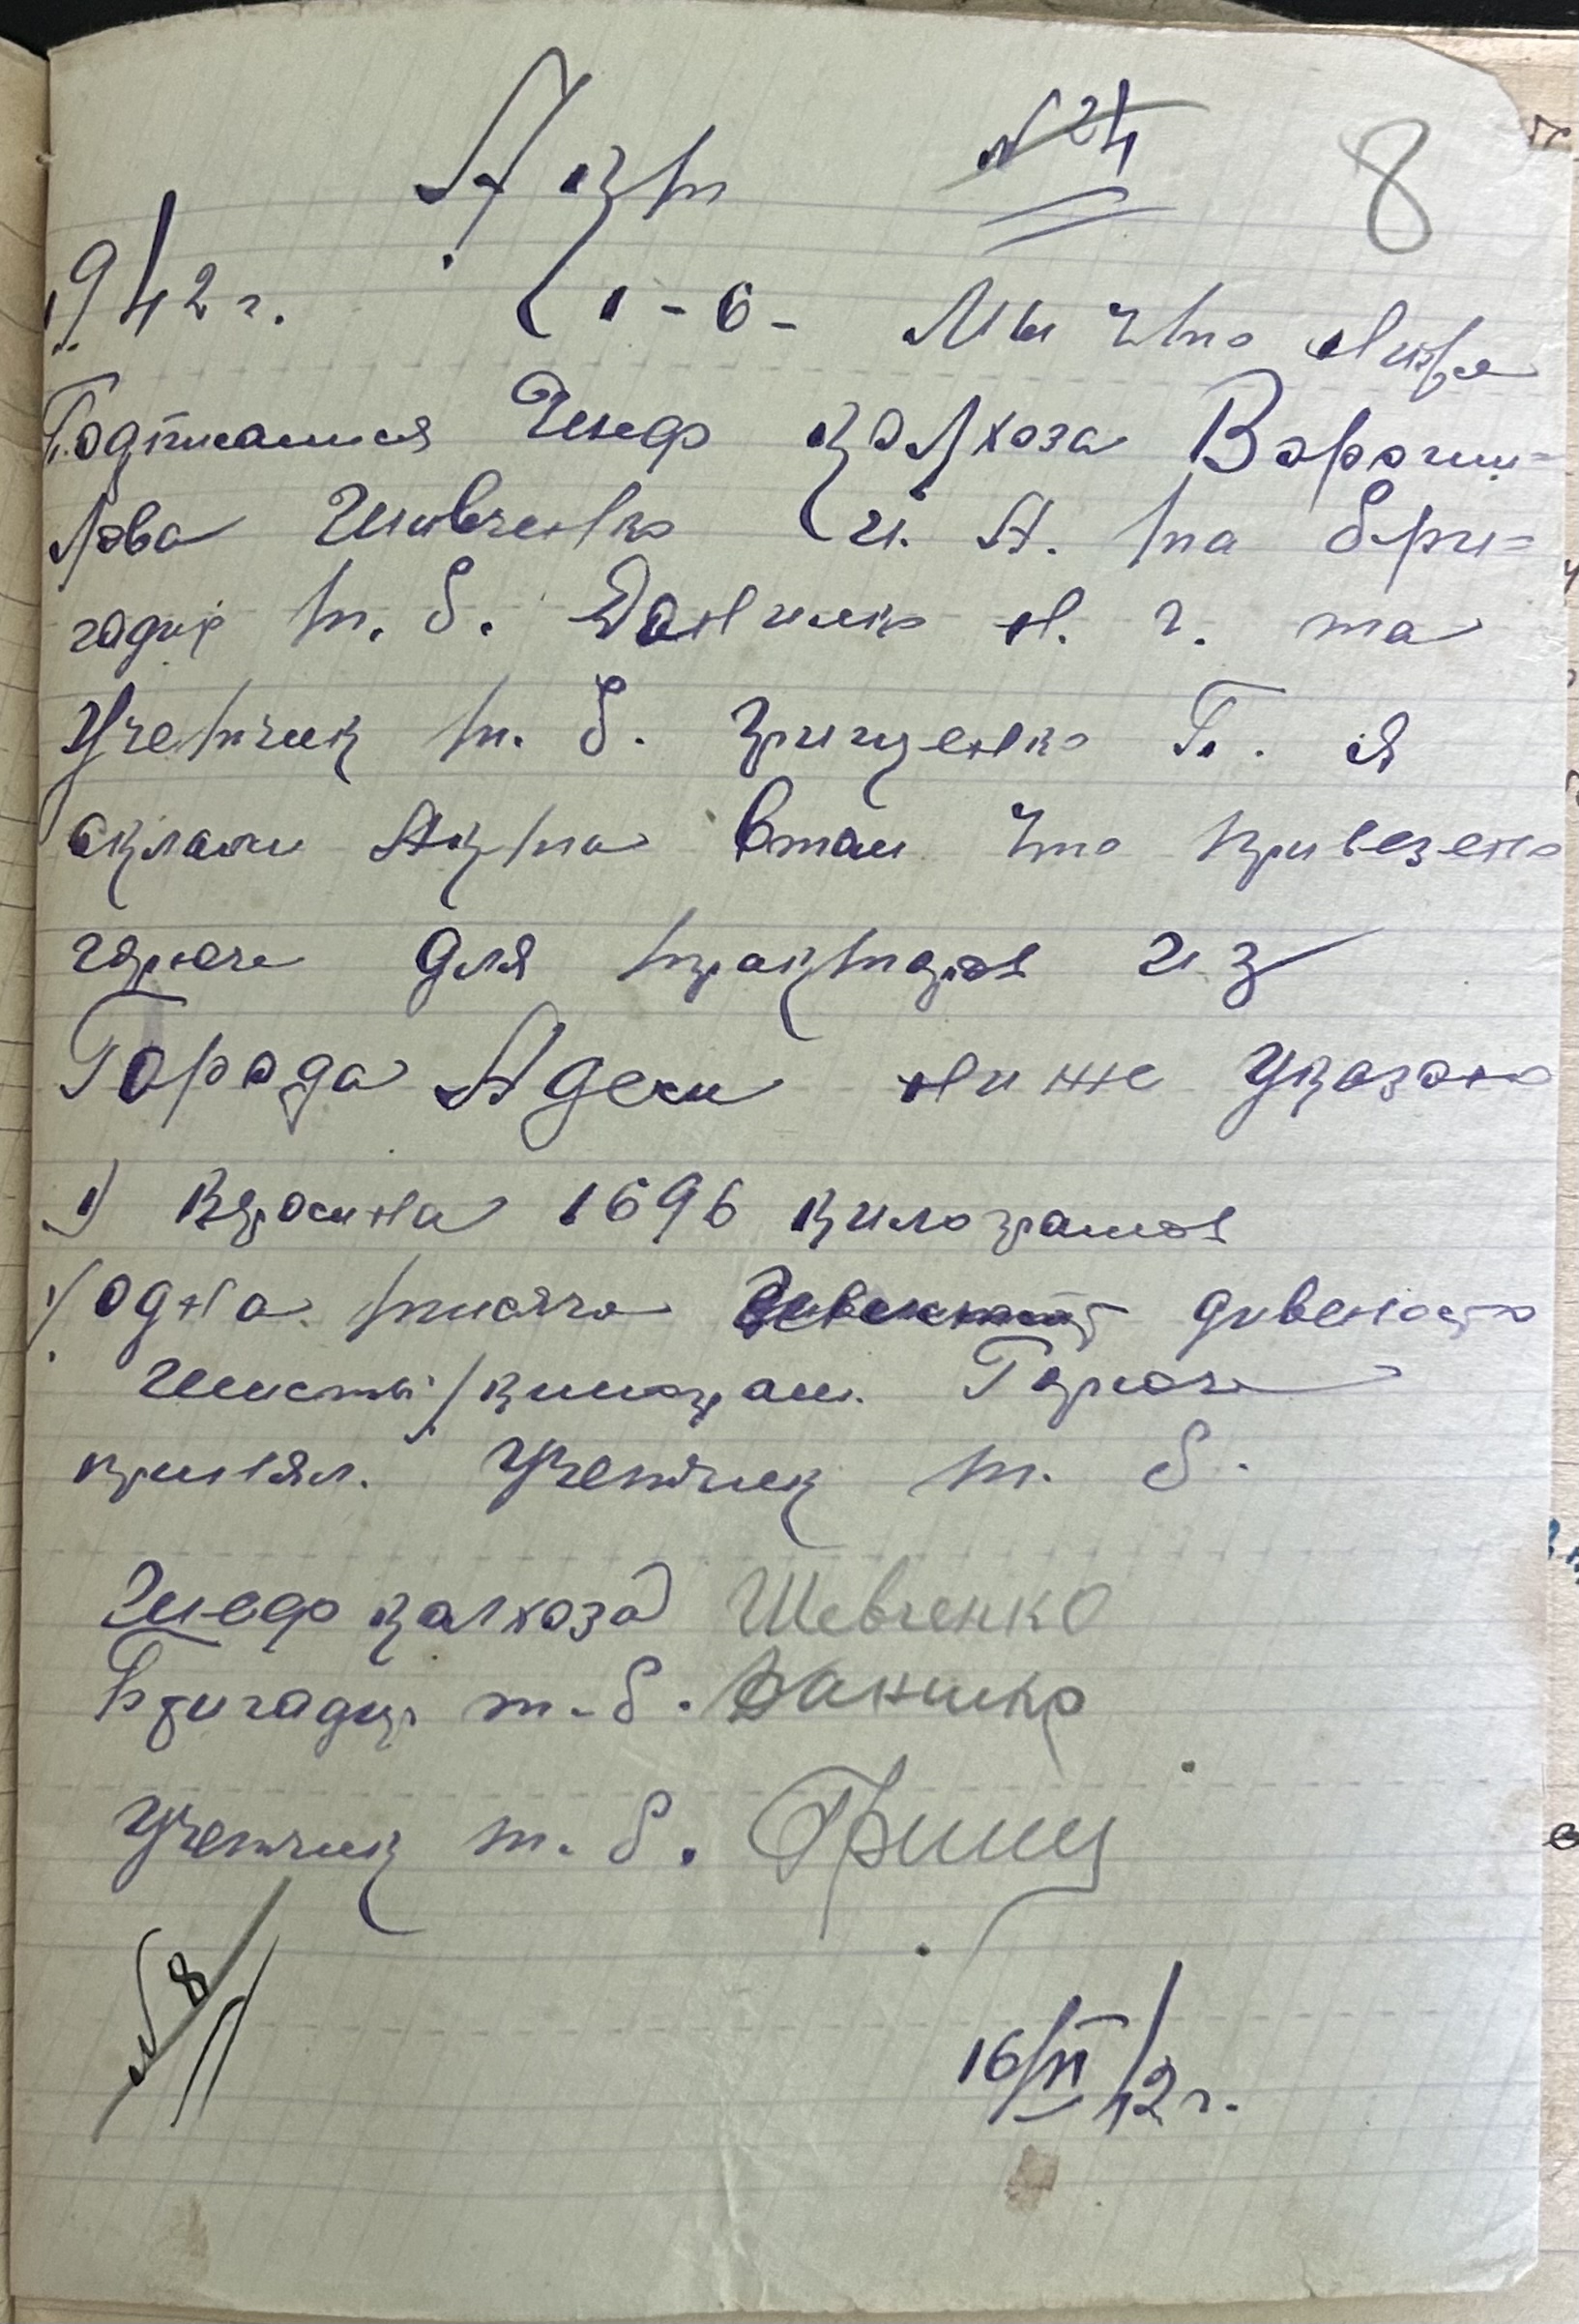 Акт №24 8
1942 г. 1-6- Мы что ниже
Подписанися Шеф колхоза Вороши=
лова Шивченко И. А. та бри=
гадир т. б. Данилко Н. г. та
Учетчик т. б. грищенко П. Я
склали Акта втом что привезено
горюче для тракторов из
Города Адеси ниже указано
1) Кросина 1696 килограмов
/одна тисяча дивеносто
Шисть/килограм. Горюче
принял. Учетчик т. б.
Шеф калхоза Шевченко
Бригадир т-б. Данилко
Учетчик т. б. Грищ
№8
16/VI 42 г.